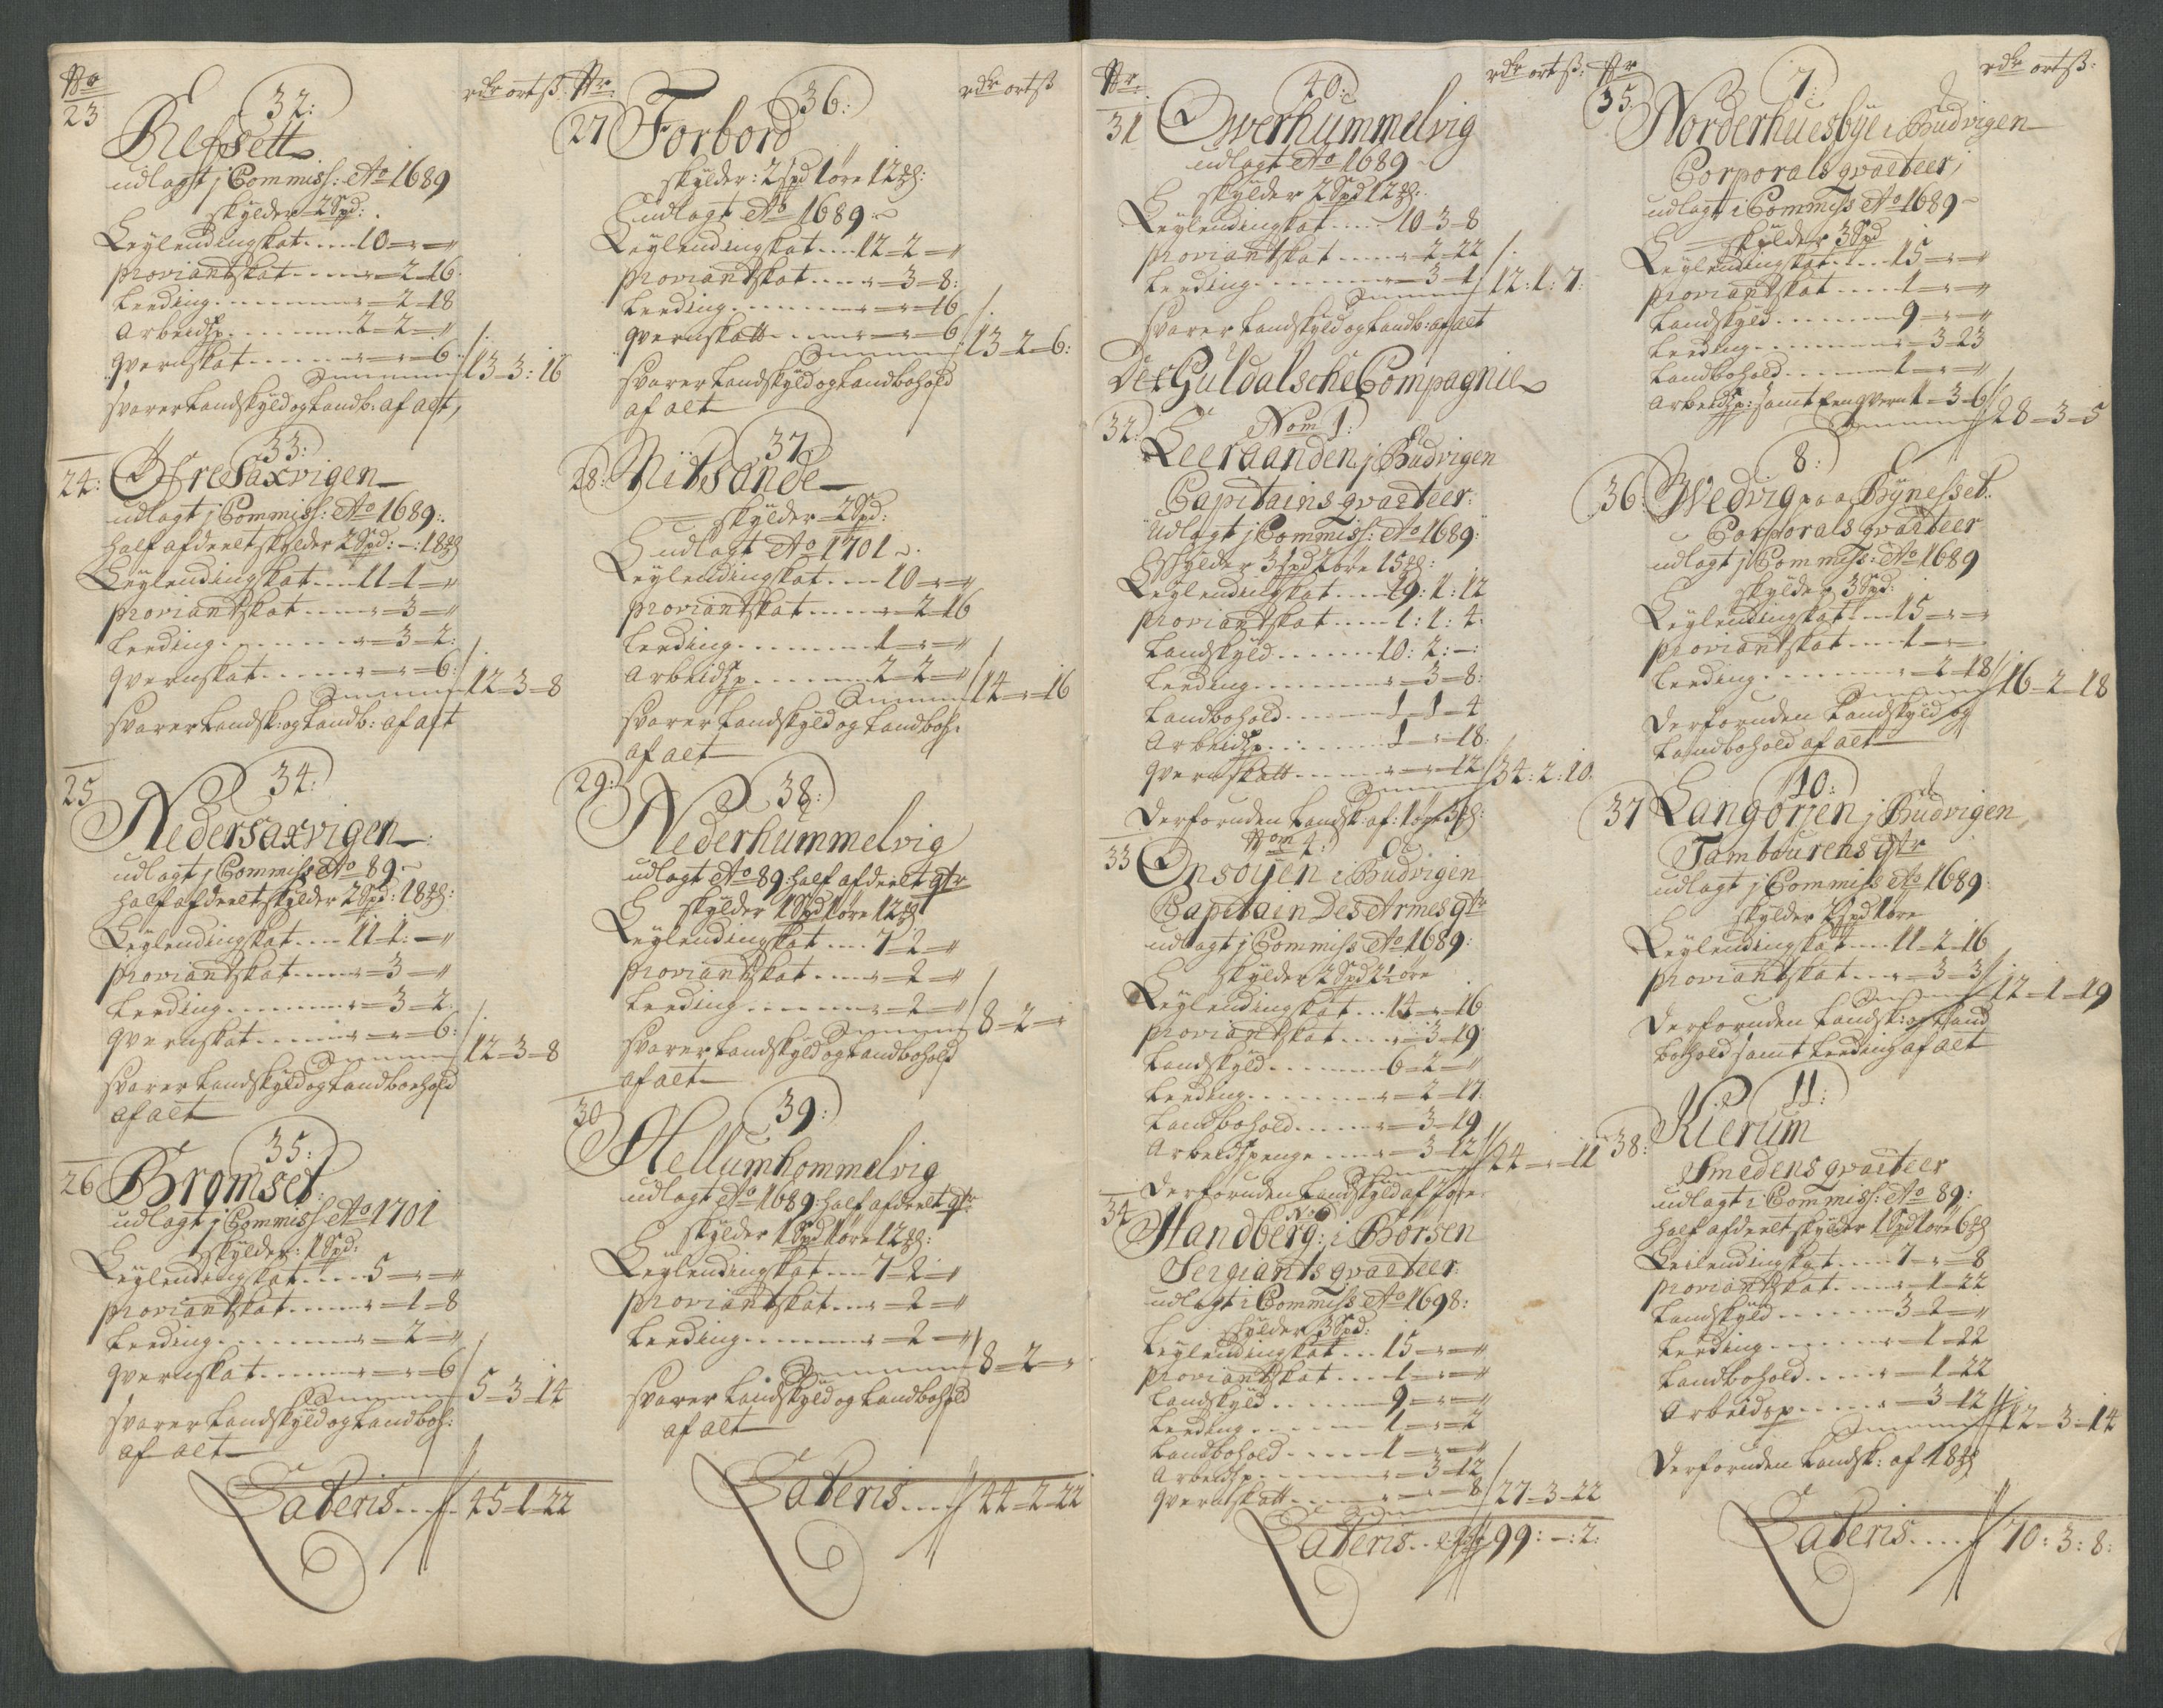 Nr
rdr ort ß:
23
32:
Refsett
udlagt j Commiss: Ao 1689
skylder 2 Spd:
Leylendingskat....10 - " - "
proviantskat........ " - 2 - 16
Leeding............ " - 2 - 18
Arbeidsp.......... 2 - 2 - "
qvernskat........ " - " - 6
Summa 13 - 3: 16
svarer Landskyld og Landb: af alt,
24:
33:
Øfre Saxvigen
udlagt j Commiss: Ao 1689:
half afdeelt skylder 2 Spd: -: 18 ℔
Leylendingskat....11 - 1 - "
proviantskat........ " - 3 - "
Leeding............ " - 3 - 2:
qvernskat........ " - " - 6:
Summa 12 - 3 - 8
svarer Landsk: og Landb: af alt
25
34:
Nedersaxvigen
udlagt j Commiss Ao 89
half afdeelt skylder 2 Spd: 18 ℔:
Leylendingskat....11 - 1: - "
proviantskat........ " - 3 - "
Leeding............ " - 3 - 2:
qvernskat........ " - " - 6:
Summa 12 - 3 - 8
svarer Landskyld og Landboehold
af alt
26
35:
Bromset
udlagt j Commiss Ao 1701
skylder: 1 Spd:
Leylendingskat....5 - " - "
proviantskat........ " - 1 - 8
Leeding............ " - 2 - "
qvernskat........ " - " - 6
Summa 5 - 3 - 14
svarer Landskyld og Landboh:
af alt
Lateris.... 45 - 1 - 22
Nr
rdr ort ß
27
36:
Forbord
skylder: 2 spd 1 öre 12 ℔:
udlagt Ao 1689
Leylendingskat....12 - 2 - "
proviantskat........ " - 3 - 8:
Leeding............ " - " - 16
qvernskatt........ " - " - 6
Summa 13 - 2 - 6:
svarer Landskyld og Landbohold
af alt
28:
37
Nitsande
skylder 2 Spd:
udlagt Ao 1701
Leylendingskat....10 - " - "
proviantskat........ " - 2 - 16
Leeding............ 1 - " - "
Arbeidsp.......... 2 - 2 - "
Summa 14 - " - 16
svarer Landskyld og Landboh:
af alt
29:
38:
Nederhummelvig
udlagt Ao 89: half afdeelt qtr
skylder 1 Spd 1 öre 12 ℔
Leylendingskat....7 - 2 - "
proviantskat........ " - 2 - "
Leeding............ " - 2 - "
Summa 8 - 2 - "
svarer Landskyld og Landbohold
af alt
30
39:
Hellumhommelvig
udlagt Ao 1689: half afdeelt qtr:
skylder 1 Spd 1 öre 12 ℔:
Leylendingskat....7 - 2 - "
proviantskat........ " - 2 - "
Leeding............ " - 2 - "
Summa 8 - 2 - "
svarer Landskyld og Landbohold
af alt
Lateris.... 44 - 2 - 22
Nr
rdr ort ß:
31
40:
Overhummelvig
udlagt Ao 1689
skylder 2 Spd 12 ℔:
Leylendingskat.... 10 - 3 - 8
proviantskat........ " - 2 - 22
Leeding............ " - 3 - 1
Summa 12: 1: 7:
svarer Landskyld og Landb: af alt
Det Guldalsche Compagnie
32:
Nom 1:
Leeraanden j Budvigen
Capitains qvarteer:
Udlagt j Commiss: Ao 1689:
Skylder 3 spd 2 öre 15 ℔:
Leylendingskat.... 19: 1: 12
proviantskat...... 1: 1: 4:
Landskyld........ 10: 2: -:
Leeding............ " - 3 - 8:
Landbohold........ 1 - 1 - 4
Arbeidsp.......... 1 - " - 18:
qvernskatt........ " - " - 12
34: 2: 10.
Derforuden Landsk: af: 1 öre 3 ℔:
33
Nom 4:
Onsöyen i Budvigen
Capitain Des Armes qtr
udlagt j Commiss Ao 1689:
skylder 2 Spd 2½ öre
Leylendingskat... 14 - " - 16
proviantskat...... " - 3 - 19
Landskyld........ 6 - 2 - "
Leeding............ " - 2 - 17:
Landbohold........ " - 3 - 19
Arbeidspenge...... " - 3 - 12
Summa 24 - " - 11
Derforuden Landskyld af 1 öre
34
No 6
Handberg: i Börsen
Sergiants qvarteer:
udlagt i Commiss Ao 1698:
skylder 3 Spd:
Leylendingskat... 15 - " - "
proviantskat...... 1 - " - "
Landskyld........ 9 - " - "
Leeding............ 1 - " - 2
Landbohold........ 1 - " - "
Arbeidsp.......... " - 3 - 12
qvernskatt........ " - " - 8
Summa 27 - 3 - 22
Lateris.... 99: -: 2:
Nr
rdr ort ß:
35
7:
Norderhuesbye i Budvigen
Corporals qvarteer j
udlagt i Commiss Ao 1689
skylder 3 Spd
Leylendingskat.... 15 - " - "
proviantskat...... 1 - " - "
Landskyld........ 9 - " - "
Leeding............ " - 3 - 23
Landbohold........ 1 - " - "
Arbeidsp: samt Een qvern 1 - 3 - 6
Summa 28 - 3 - 5
36:
8:
Wedvig paa Bynesset:
Corporals qvarteer
udlagt j Commiss: Ao 1689
skylder 3 Spd:
Leylendingskat.... 15 - " - "
proviantskat...... 1 - " -
Leeding............ " - 2 - 18
Summa 16 - 2 - 18
Derforuden Landskyld og
Landbohold af alt
37
10:
Langörjen j Budvigen
Tambourens qtr
udlagt j Commiss Ao 1689:
skylder 2 spd 1 öre
Leylendingskat.... 11 - 2 - 16
proviantskat...... " - 3 - 3
Summa 12 - 1 - 19
Derforuden Landsk: og Land
bohold samt Leeding af alt
38:
11:
Kierum
Smedens qvarteer
udlagt i Commiss: Ao 89:
half afdeelt skylder 1 Spd 1 öre 6 ℔
Leilendingskat.... 7 - " - 8
proviantskat...... " - 1 - 22
Landskyld........ 3 - 2 - "
Leeding............ " - 1 - 22
Landbohold........ " - 1 - 22
Arbeidsp.......... " - 3 - 12
Summa 12 - 3 - 14
Derforuden Landsk: af 18 ℔
Lateris.... 70: 3: 8: